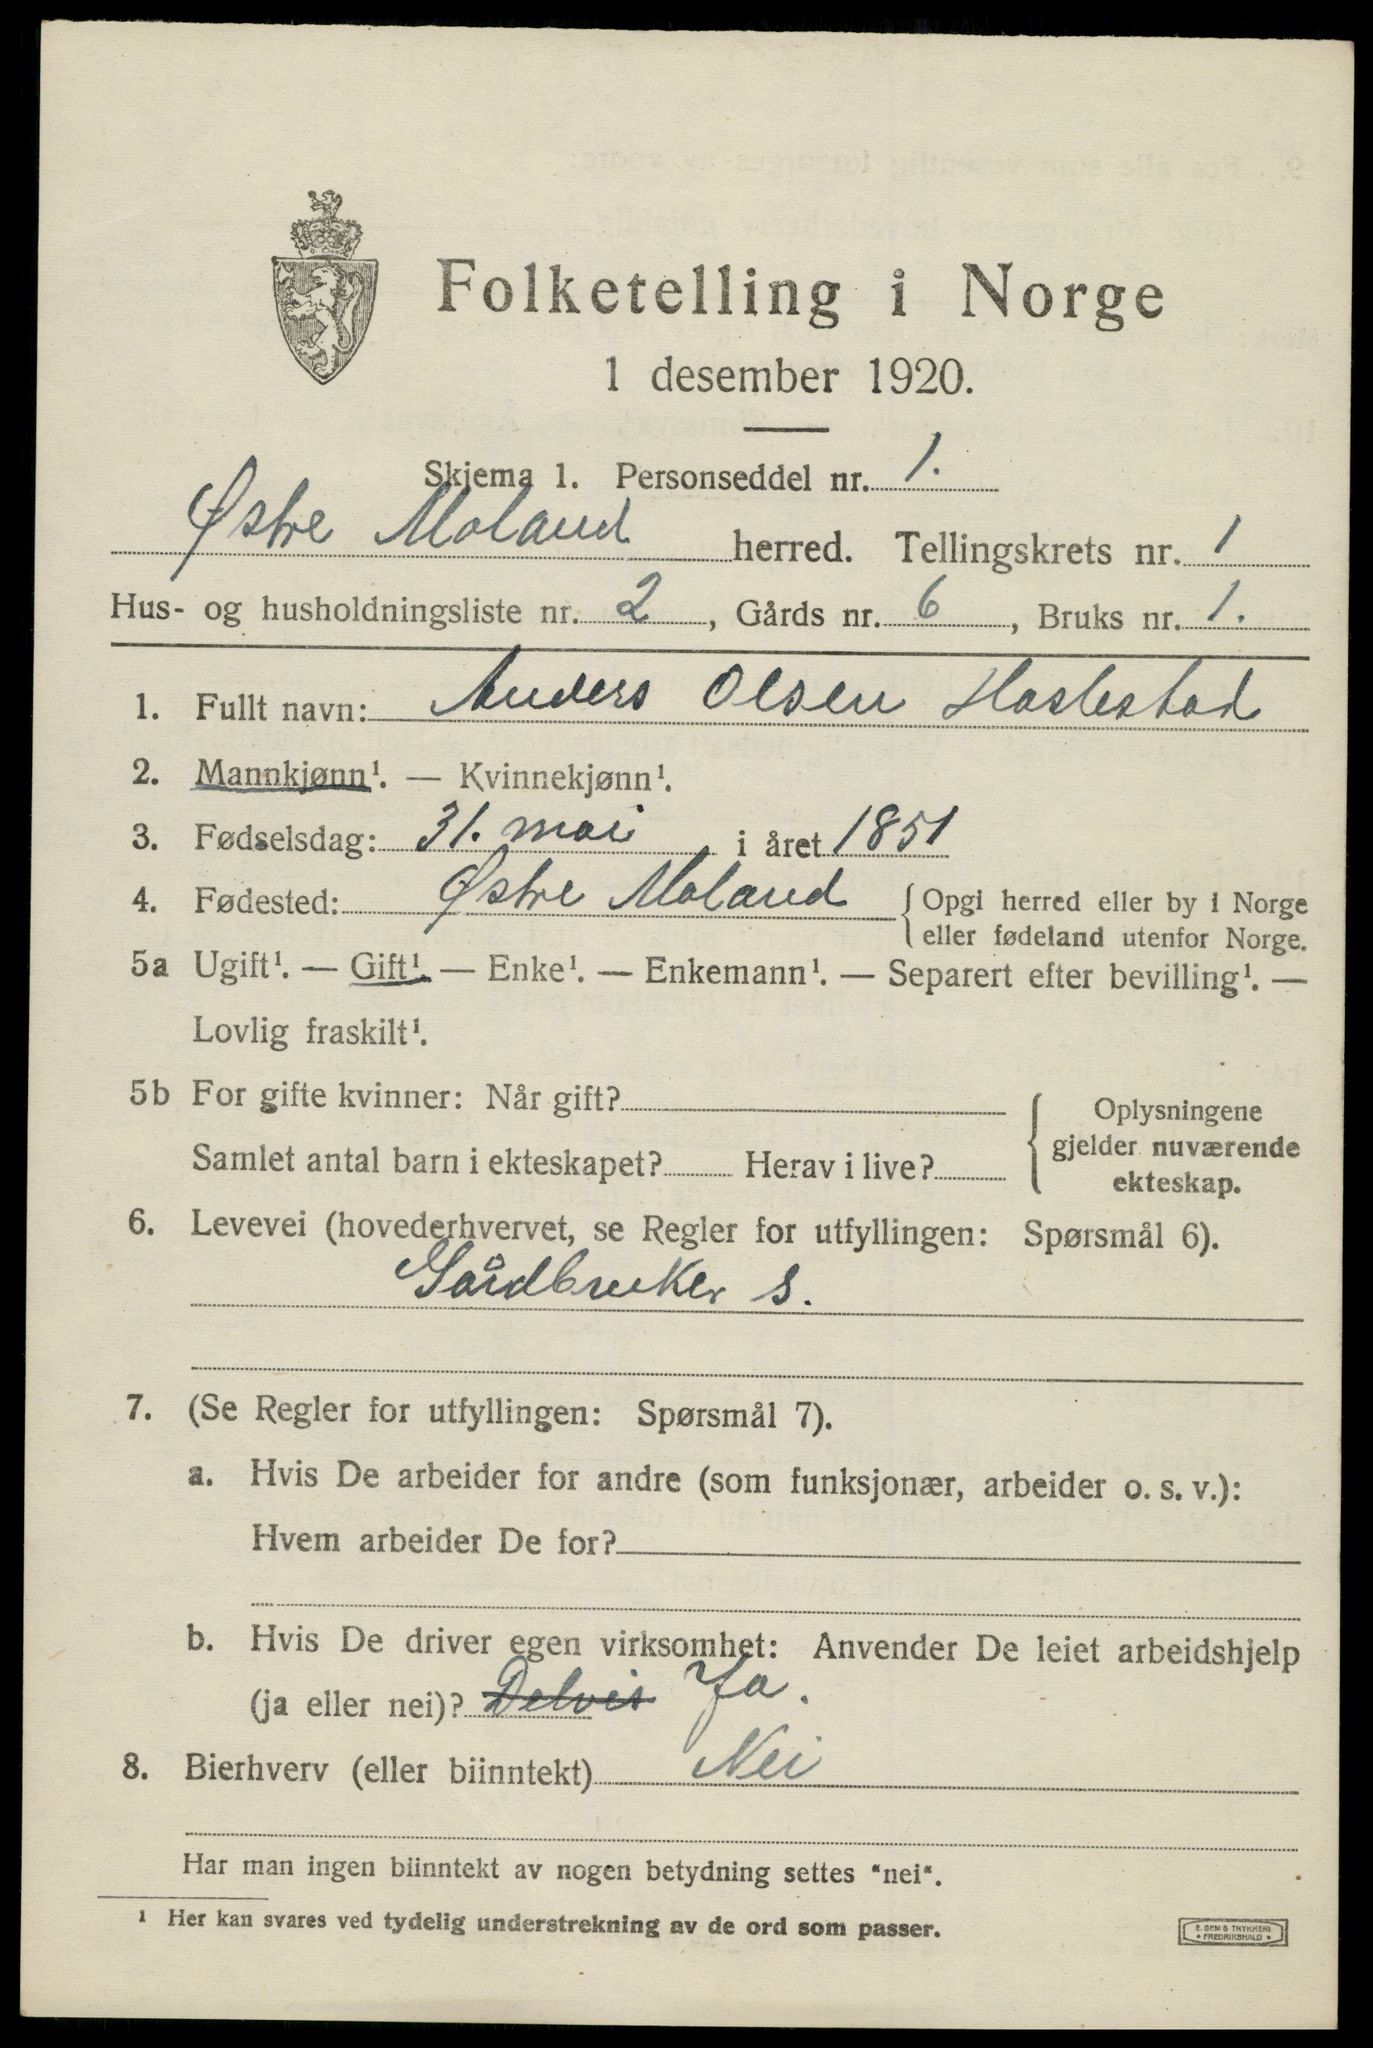 Folketelling i Norge
1 desember 1920.
Skjema 1. Personseddel nr. 1.
Østre Moland herred. Tellingskrets nr. 1
Hus- og husholdningsliste nr. 2, Gårds nr. 6, Bruks nr. 1.
1. Fullt navn: Anders Olsen Haslestad
2. Mannkjønn¹. — Kvinnekjønn¹.
3. Fødselsdag: 31. mai i året 1851
4. Fødested: Østre Moland { Opgi herred eller by i Norge
eller fødeland utenfor Norge.
5a Ugift¹. — Gift¹. — Enke¹. — Enkemann¹. — Separert efter bevilling¹. —
Lovlig fraskilt¹.
5b For gifte kvinner: Når gift?
Samlet antal barn i ekteskapet? Herav i live?
{ Oplysningene
gjelder nuværende
ekteskap.
6. Levevei (hovederhvervet, se Regler for utfyllingen: Spørsmål 6).
Gårdbruker s.
7. (Se Regler for utfyllingen: Spørsmål 7).
a. Hvis De arbeider for andre (som funksjonær, arbeider o. s. v.):
Hvem arbeider De for?
b. Hvis De driver egen virksomhet: Anvender De leiet arbeidshjelp
(ja eller nei)? Delvis Ja.
8. Bierhverv (eller biinntekt) Nei
Har man ingen biinntekt av nogen betydning settes "nei".
¹ Her kan svares ved tydelig understrekning av de ord som passer.
E. SEM S TRYKKERI
• FREDRIKSHALD •